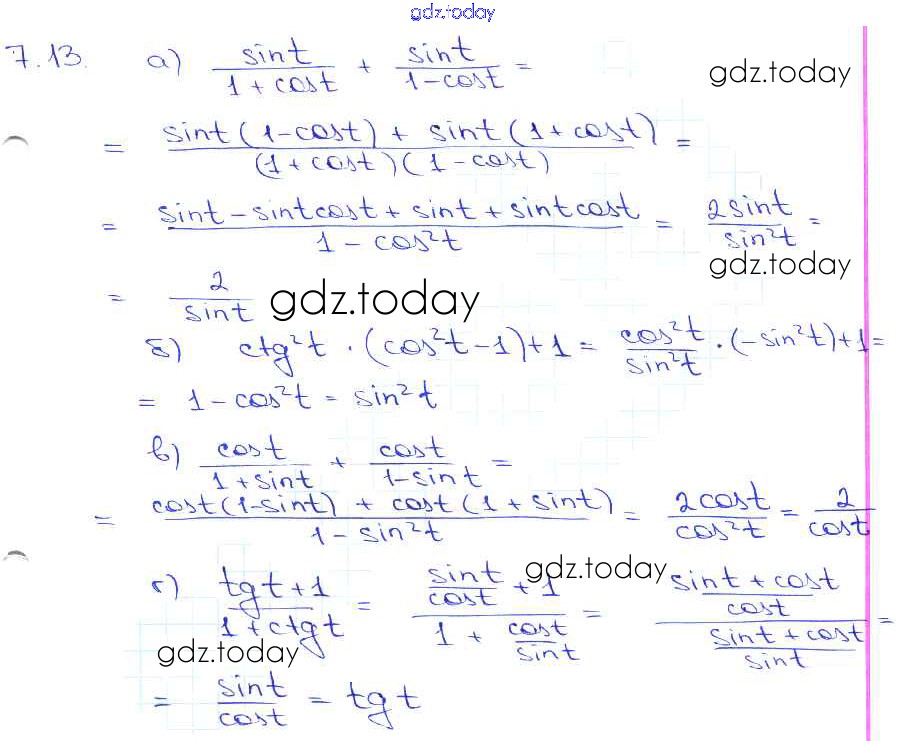 gdz.today
7.13. а) sint/(1+cost) + sint/(1-cost) =
gdz.today
= (sint(1-cost) + sint(1+cost))/((1+cost)(1-cost)) =
= (sint-sintcost+sint+sintcost)/(1-cos²t) = 2sint/sin²t =
gdz.today
= 2/sint
gdz.today
б) ctg²t · (cos²t-1)+1 = cos²t/sin²t · (-sin²t)+1 =
= 1-cos²t = sin²t
в) cost/(1+sint) + cost/(1-sint) =
= (cost(1-sint) + cost(1+sint))/(1-sin²t) = 2cost/cos²t = 2/cost
gdz.today
г) (tgt+1)/(1+ctgt) = (sint/cost + 1)/(1 + cost/sint) = ((sint+cost)/cost)/((sint+cost)/sint) =
gdz.today
= sint/cost = tgt